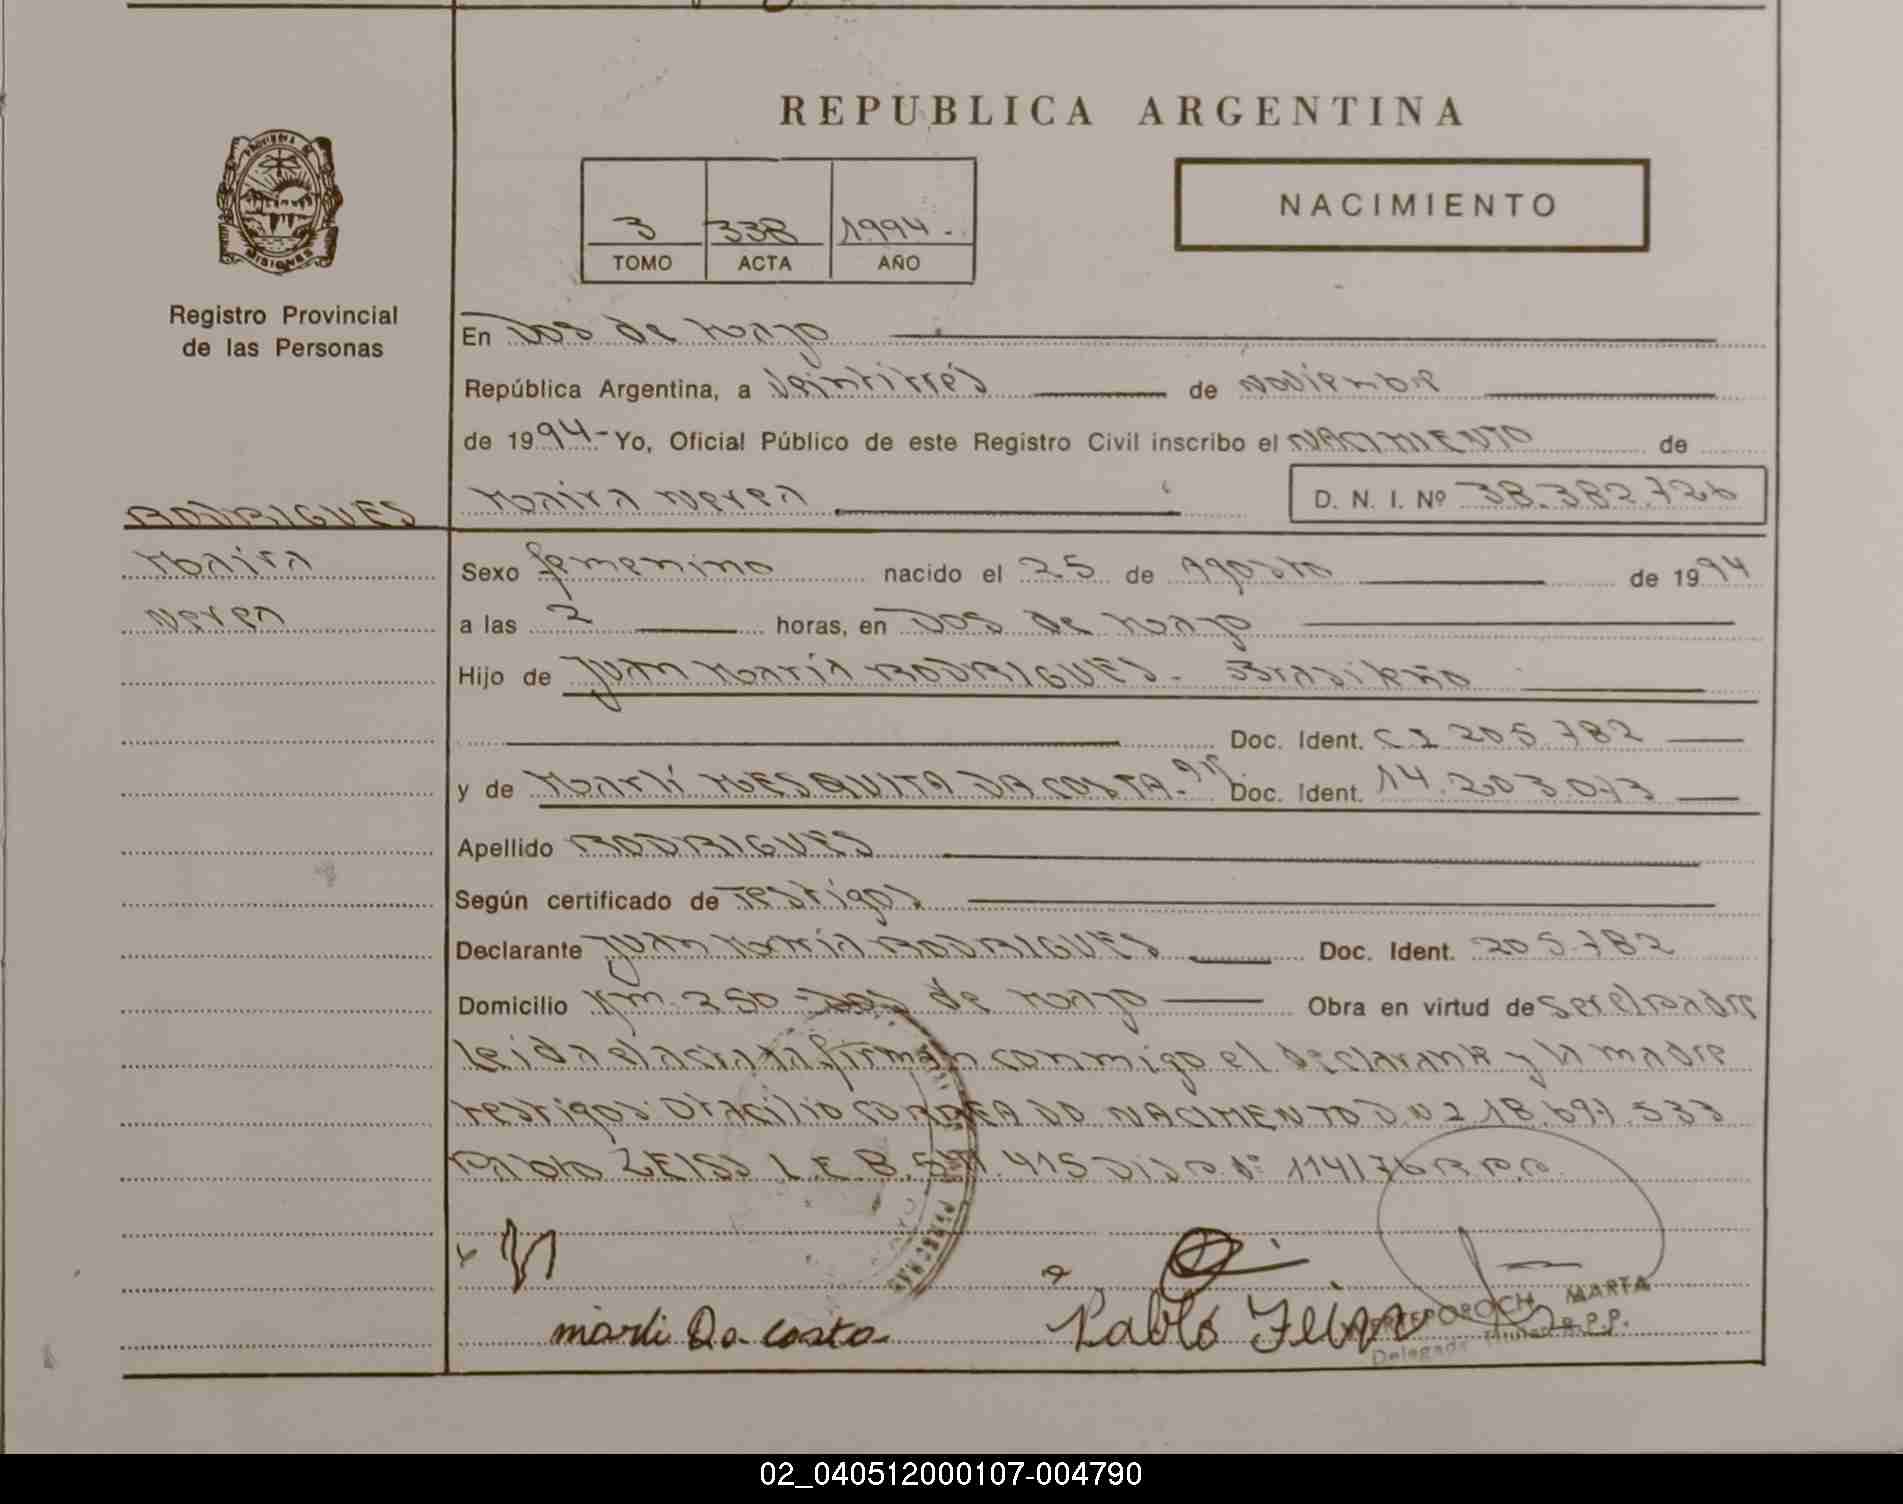 REPUBLICA ARGENTINA
PROVINCIA DE
MISIONES
Registro Provincial
de las Personas
3 338 1994.-
TOMO ACTA AÑO
NACIMIENTO
En Dos de Mayo
República Argentina, a veintitrés de Noviembre
de 1994- Yo, Oficial Público de este Registro Civil inscribo el NACIMIENTO de
RODRIGUES
Maira Nerea D. N. I. Nº 38.382.726
Maira
Sexo femenino nacido el 25 de Agosto de 1994
Nerea
a las 2 horas, en Dos de Mayo
Hijo de Juan María RODRIGUES - Brasileño
Doc. Ident. C I 205.782
y de Marlí MESQUITA DA COSTA - arg. Doc. Ident. 14.203.073
Apellido RODRIGUES
Según certificado de Testigos
Declarante Juan María RODRIGUES Doc. Ident. 205.782
Domicilio Km. 250 - Dos de Mayo Obra en virtud de ser el padre
Leida el acta la firman conmigo el declarante y la madre
testigos: Otacilio CORREA DO NACIMENTO D N I 18.697.533
Pablo ZEISS L.E. 8.571.415 Disp. Nº 114/76 R.P.P.
marli Da costa
Pablo
MARTA
Delegada R.P.P.
02_040512000107-004790